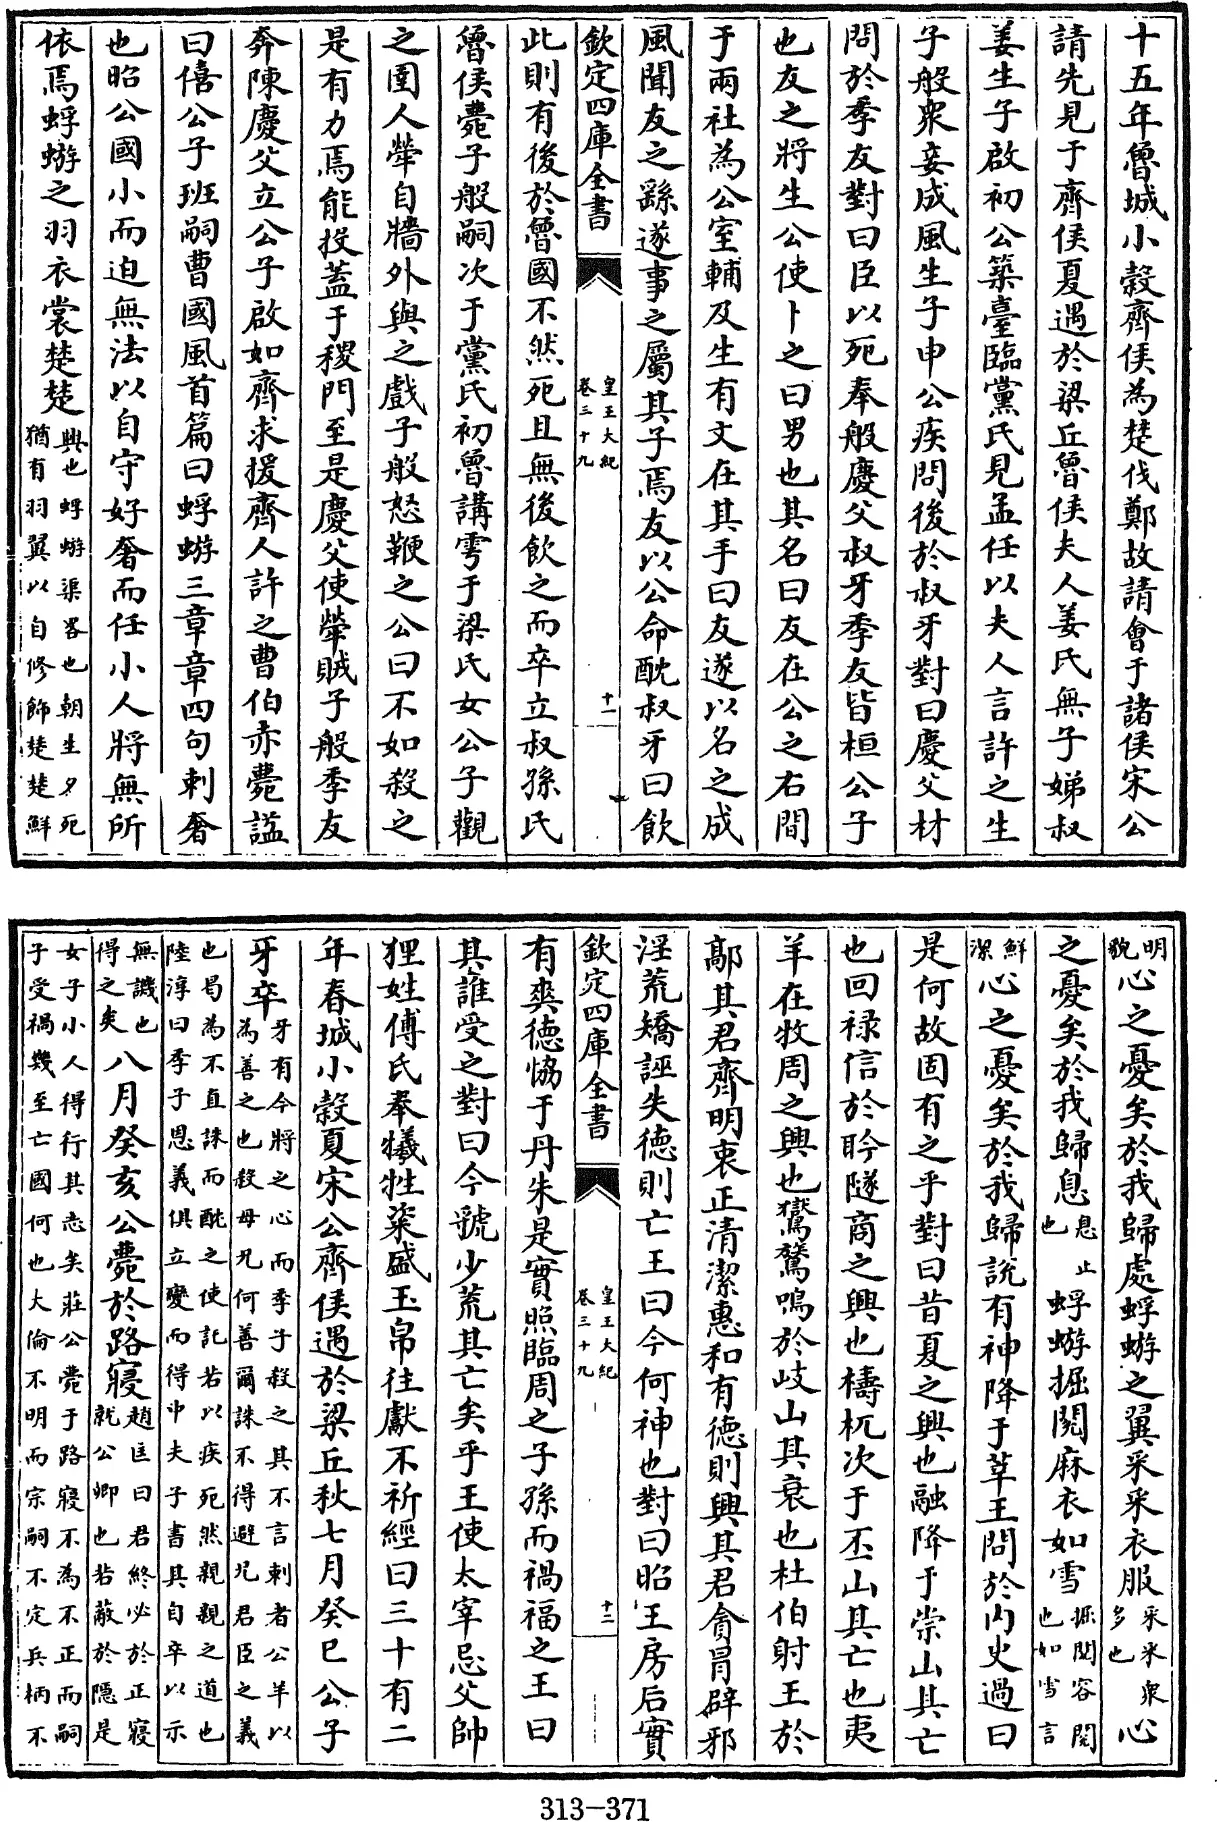 十五年魯城小穀齊侯為楚伐鄭故請會于諸侯宋公
請先見于齊侯夏遇於梁丘魯侯夫人姜氏無子娣叔
姜生子啟初公築臺臨黨氏見孟任以夫人言許之生
子般衆妾成風生子申公疾問後於叔牙對曰慶父材
問於季友對曰臣以死奉般慶父叔牙季友皆桓公子
也友之將生公使卜之曰男也其名曰友在公之右間
于兩社為公室輔及生有文在其手曰友遂以名之成
風聞友之繇遂事之屬其子焉友以公命酖叔牙曰飲
欽定四庫全書
皇王大紀
卷三十九
十一
此則有後於魯國不然死且無後飲之而卒立叔孫氏
魯侯薨子般嗣次于黨氏初魯講雩于梁氏女公子觀
之圉人犖自牆外與之戲子般怒鞭之公曰不如殺之
是有力焉能投葢于稷門至是慶父使犖賊子般季友
奔陳慶父立公子啟如齊求援齊人許之曹伯亦薨諡
曰僖公子班嗣曹國風首篇曰蜉蝣三章章四句刺奢
也昭公國小而迫無法以自守好奢而任小人將無所
依焉蜉蝣之羽衣裳楚楚興也蜉蝣渠畧也朝生夕死
猶有羽翼以自修飾楚楚鮮
明
貌心之憂矣於我歸處蜉蝣之翼采采衣服采采衆
多也心
之憂矣於我歸息息止
也蜉蝣掘閱麻衣如雪掘閱容閱
也如雪言
鮮
潔心之憂矣於我歸說有神降于莘王問於內史過曰
是何故固有之乎對曰昔夏之興也融降于崇山其亡
也回祿信於聆隧商之興也檮杌次于丕山其亡也夷
羊在牧周之興也鸑鷟鳴於岐山其衰也杜伯射王於
鄗其君齊明衷正清潔惠和有德則興其君貪冒辟邪
淫荒矯誣失德則亡王曰今何神也對曰昭王房后實
欽定四庫全書
皇王大紀
卷三十九
十二
有爽德恊于丹朱是實照臨周之子孫而禍福之王曰
其誰受之對曰今虢少荒其亡矣乎王使太宰忌父帥
狸姓傅氏奉犧牲粢盛玉帛往獻不祈經曰三十有二
年春城小穀夏宋公齊侯遇於梁丘秋七月癸巳公子
牙卒牙有今將之心而季子殺之其不言刺者公羊以
為善之也殺母兄何善爾誅不得避兄君臣之義
也曷為不直誅而酖之使託若以疾死然親親之道也
陸淳曰季子恩義俱立變而得中夫子書其自卒以示
無譏也
得之矣八月癸亥公薨於路寢趙匡曰君終必於正寢
就公卿也若蔽於隱是
女子小人得行其志矣莊公薨于路寢不為不正而嗣
子受禍幾至亡國何也大倫不明而宗嗣不定兵柄不
313-371